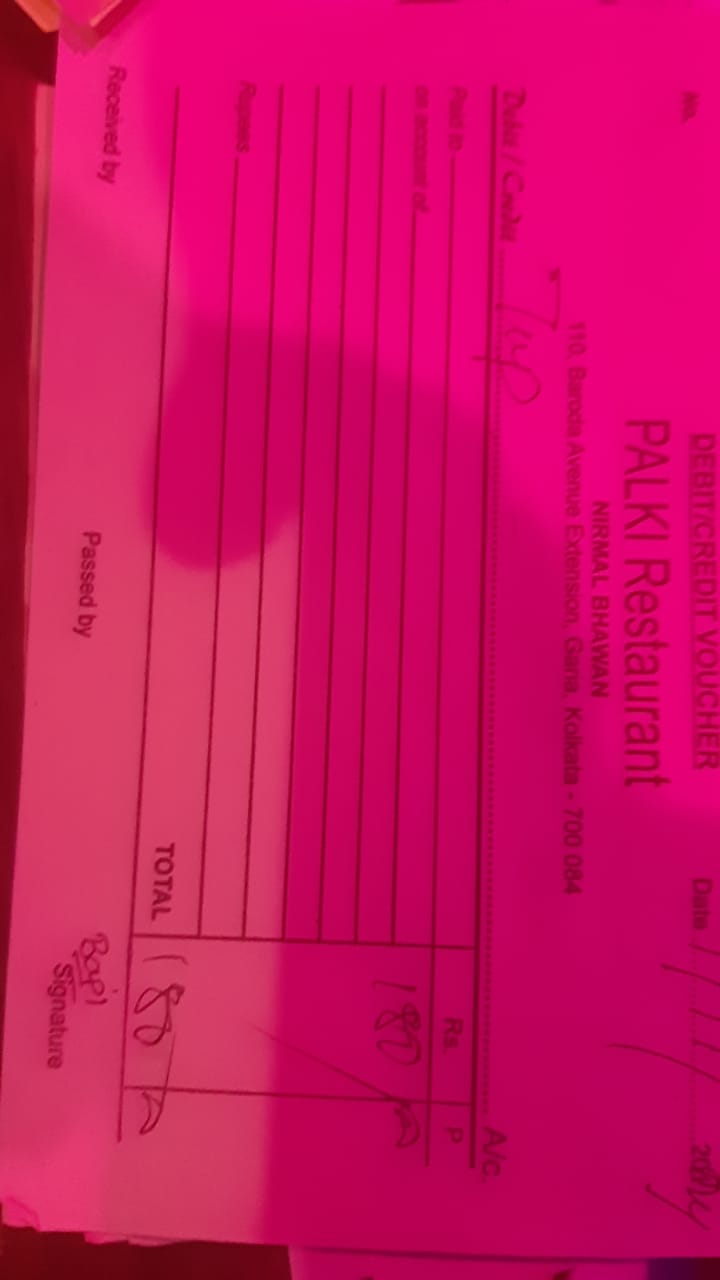 DEBIT/CREDIT VOUCHER
No. Date
PALKI Restaurant
NIRMAL BHAWAN
110, Baroda Avenue Extension, Garia, Kolkata - 700 084
Debit / Credit A/c.
Paid to Rs. P
on account of 180
Rupees
TOTAL 180
Bapi
Received by Passed by Signature